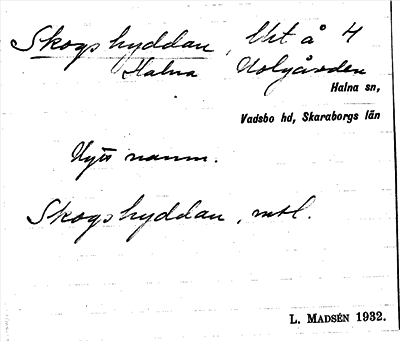 Skogshyddan, lht å 4
Halna Holgården
Halna sn,
Vadsbo hd, Skaraborgs län
Nytt namn.
Skogshyddan, mtl.
L. MADSÉN 1932.